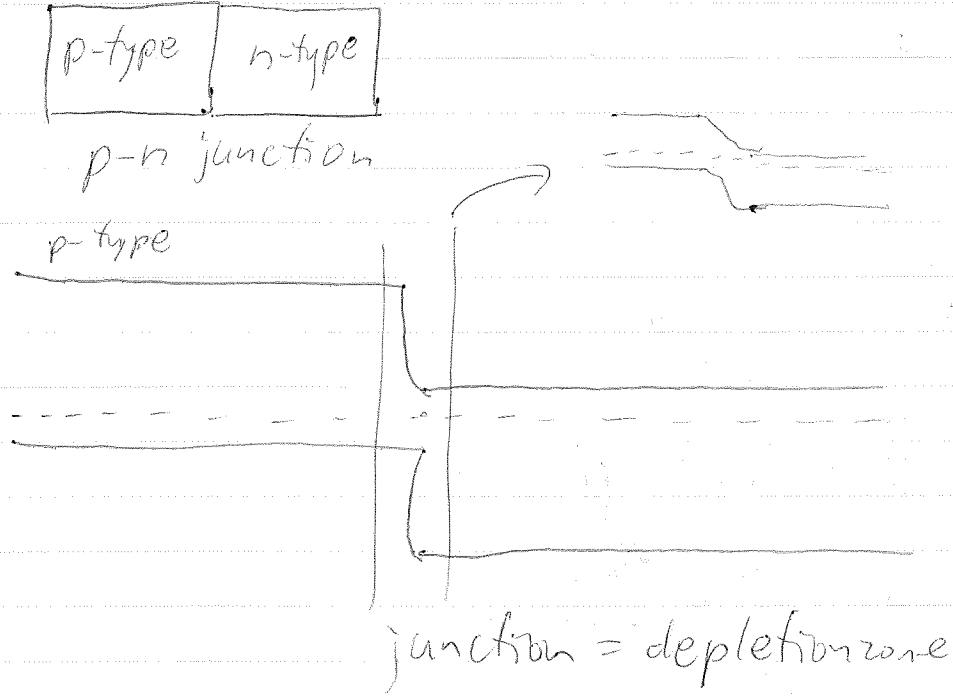 p-type n-type
p-n junction
p-type
junction = depletionzone